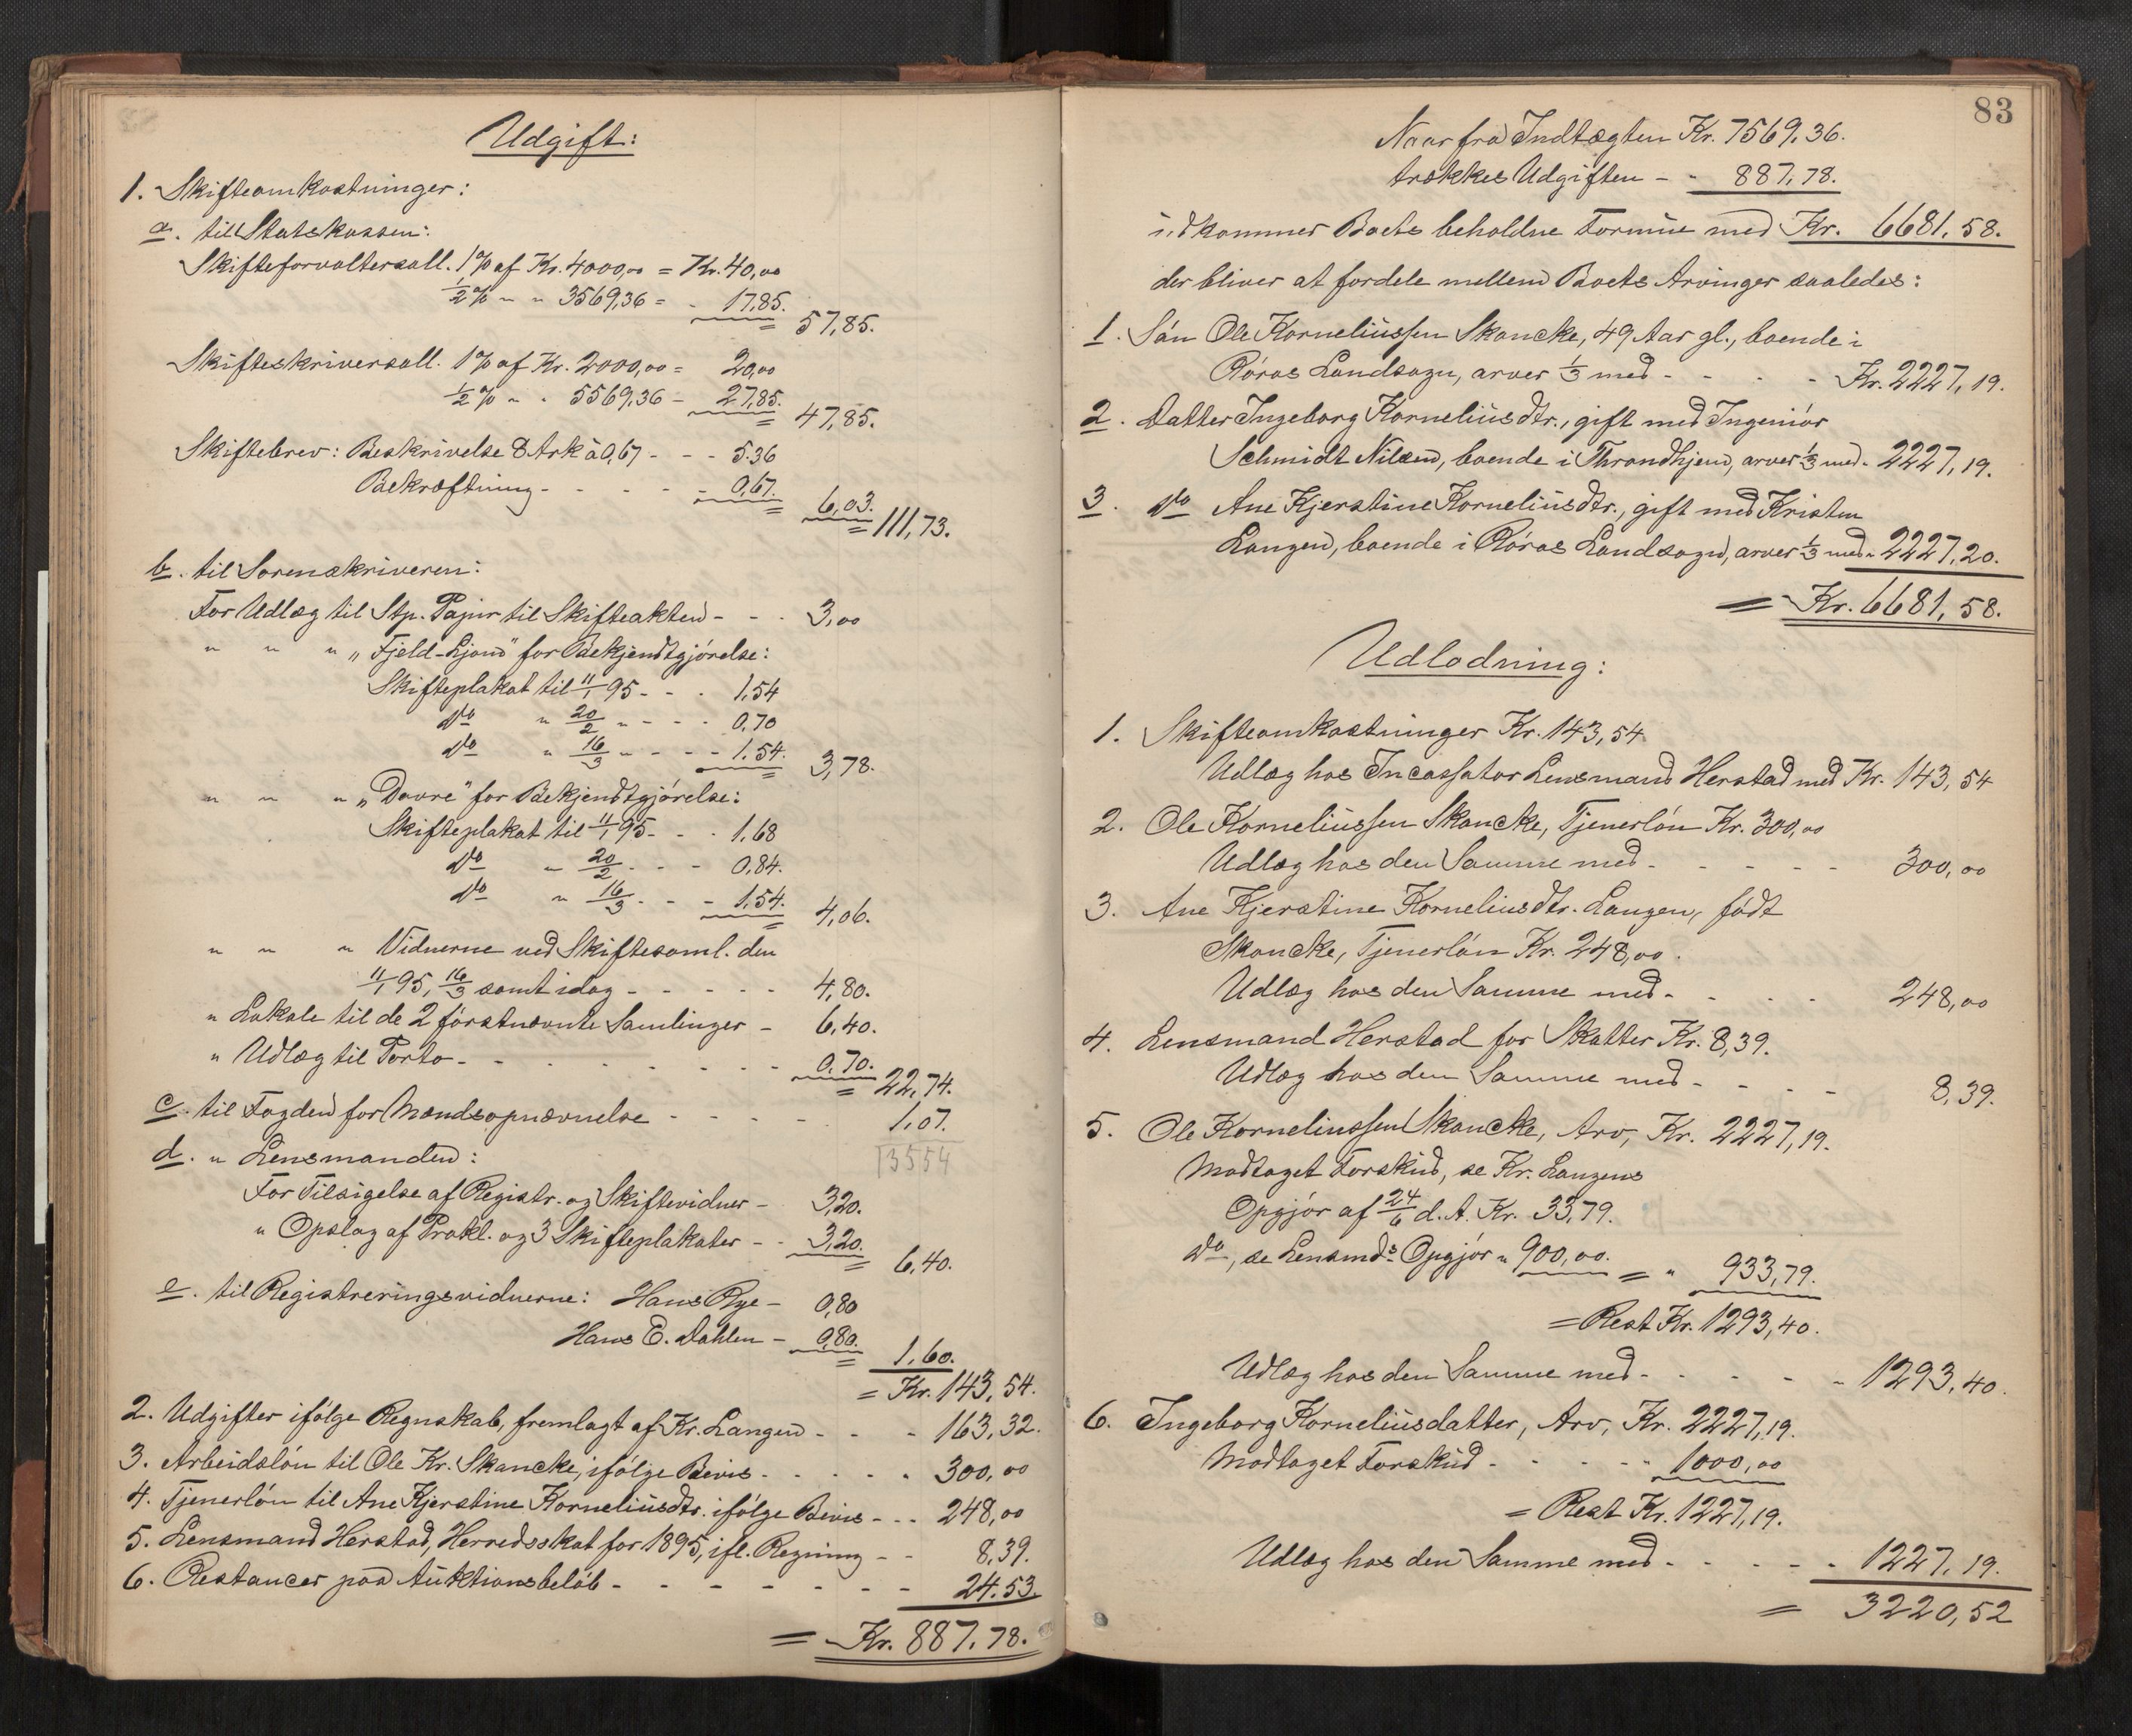 Udgift:
1. Skifteomkostninger:
a. til Statskassen:
Skifteforvaltersall. 1% af Kr. 4000,00 = Kr. 40,00
½% " " 3569,36 = - 17,85.
= 57,85.
Skifteskriversall. 1% af Kr. 2000,00 = 20,00
½% " " 5569,36 - 27,85.
= 47,85.
Skiftebrev: Beskrivelse 8 Ark à 0,67 - - - 5.36
Bekræftning - - - - - 0,67.
= 6,03.
= 111,73.
b. til Sorenskriveren:
For Udlæg til Stp. Papir til Skifteakten - - - 3,00
" " " „Fjeld-Ljom" for Bekjendtgjørelse:
Skifteplakat til 11/1 95 - - - 1,54
do " 20/2 " - - - 0,70
do " 16/3 " - - - 1,54.
= 3,78.
" " " „Dovre" for Bekjendtgjørelse:
Skifteplakat til 11/1 95 - - - 1,68
do " 20/2 - - - 0,84.
do " 16/3 - - - 1,54.
= 4,06.
" " " Vidnerne ved Skiftesaml. den
11/1 95, 16/3 samt idag - - - - - 4,80.
" Lokale til de 2 førstnævnte Samlinger - 6,40.
" Udlæg til Porto - - - - - - - 0,70.
= 22,74.
c. til Fogden for Mændsopnævnelse - - - - 1,07.
13554
d. " Lensmanden:
For Tilsigelse af Registr. og Skiftevidner - 3,20.
" Opslag af Prokl. og 3 Skifteplakater - - 3,20.
= 6,40.
e. til Registreringsvidnerne: Hans Rye - 0,80
Hans E. Dahlen - 0,80.
= 1,60.
= Kr. 143,54.
2. Udgifter ifølge Regnskab, fremlagt af Kr. Langen - - - 163,32.
3. Arbeidsløn til Ole Kr. Skancke, ifølge Bevis - - - - - 300,00
4. Tjenerløn til Ane Kjerstine Korneliusdtr. ifølge Bevis - - - 248,00
5. Lensmand Herstad, Herredsskat for 1895, ifl. Regning - - 8,39.
6. Restancer paa Auktionsbeløb - - - - - - - 24.53.
= Kr. 887,78.
83
Naar fra Indtægten Kr. 7569,36.
trækkes Udgiften - - 887,78.
udkommer Boets beholdne Formue med Kr. 6681,58.
der bliver at fordele mellem Boets Arvinger saaledes:
1. Søn Ole Korneliussen Skancke, 49 Aar gl., boende i
Røros Landsogn, arver ⅓ med - - - - Kr. 2227,19.
2. Datter Ingeborg Korneliusdtr., gift med Ingeniør
Schmidt Nilsen, boende i Throndhjem, arver ⅓ med - 2227,19.
3. do Ane Kjerstine Korneliusdtr., gift med Kristen
Langen, boende i Røros Landsogn, arver ⅓ med " 2227,20.
= Kr. 6681,58.
Udlodning:
1. Skifteomkostninger Kr. 143,54.
Udlæg hos Incassator Lensmand Herstad med Kr. 143,54
2. Ole Korneliussen Skancke, Tjenerløn Kr. 300,00
Udlæg hos den Samme med - - - - - 300,00
3. Ane Kjerstine Korneliusdtr. Langen, født
Skancke, Tjenerløn Kr. 248,00.
Udlæg hos den Samme med - - - - 248,00
4. Lensmand Herstad for Skatter Kr. 8,39.
Udlæg hos den Samme med - - - - 8,39.
5. Ole Korneliussen Skancke, Arv, Kr. 2227,19.
Modtaget Forskud, se Kr. Langens
Opgjør af 24/6 d. A. Kr. 33,79.
do, se Lensmds Opgjør " 900,00. = " 933,79.
= Rest Kr. 1293,40.
Udlæg hos den Samme med - - - - - 1293,40.
6. Ingeborg Korneliusdatter, Arv, Kr. 2227,19.
Modtaget Forskud - - - - - 1000,00
= Rest Kr. 1227,19.
Udlæg hos den Samme med - - - - - 1227,19.
= 3220,52